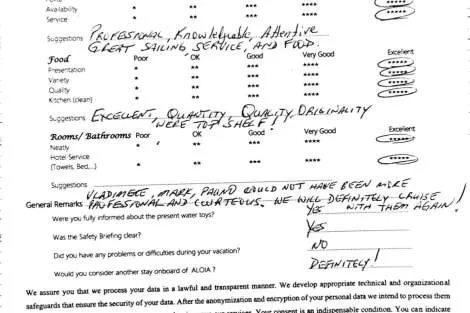 Availability * ** *** **** *****
Service * ** *** **** *****
Suggestions PROFESSIONAL, Knowledgeable, Attentive
GREAT SAILING SERVICE, AND FOOD.
Food Poor OK Good Very Good Excellent
Presentation * ** *** **** *****
Variety * ** *** **** *****
Quality * ** *** **** *****
Kitchen (clean) * ** *** **** *****
Suggestions EXCELLENT, QUANTITY, QUALITY, ORIGINALITY
WERE TOP SHELF!
Rooms/ Bathrooms Poor OK Good Very Good Excellent
Neatly * ** *** **** *****
Hotel Service
(Towels, Bed,...) * ** *** **** *****
Suggestions
VLADIMERE, MARK, COULD NOT HAVE BEEN MORE
General Remarks PROFESSIONAL AND COURTEOUS. WE WILL DEFINITELY CRUISE
WITH THEM AGAIN!
Were you fully informed about the present water toys? YES
Was the Safety Briefing clear? YES
Did you have any problems or difficulties during your vacation? NO
Would you consider another stay onboard of ALOIA ? DEFINITELY!
We assure you that we process your data in a lawful and transparent manner. We develop appropriate technical and organizational
safeguards that ensure the security of your data. After the anonymization and encryption of your personal data we intend to process them
Your consent is an indispensable condition. You can indicate